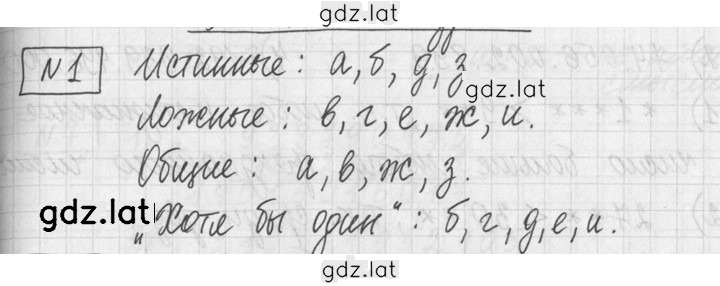 gdz.lat
№1 Истинные: а, б, д, з
gdz.lat
Ложные: в, г, е, ж, и.
Общие: а, в, ж, з.
gdz.lat
„Хотя бы один“: б, г, д, е, и.
gdz.lat